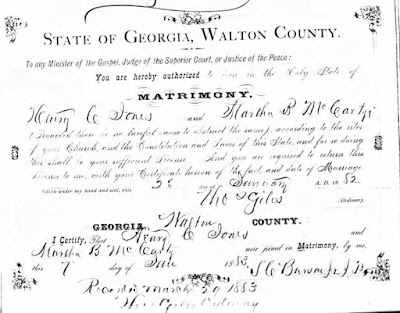 STATE OF GEORGIA, WALTON COUNTY.
To any Minister of the Gospel, Judge of the Superior Court, or Justice of the Peace:
You are hereby authorized to join in the Holy State of
MATRIMONY,
Henry C Jones and Martha B McCarty
(Provided there is no lawful cause to obstruct the same), according to the rites
of your Church, and the Constitution and Laws of this State, and for so doing
this shall be your sufficient License. And you are required to return this
License to me, with your Certificate hereon of the fact, and date of Marriage
Given under my hand and seal, this 2 day January A. D. 18 82
Tho Giles Ordinary.
GEORGIA, Walton COUNTY.
I Certify, That Henry C Jones and
Martha B McCarty were joined in Matrimony, by me,
this 7 day of 1883
Recorded March 1883
Giles Ordinary